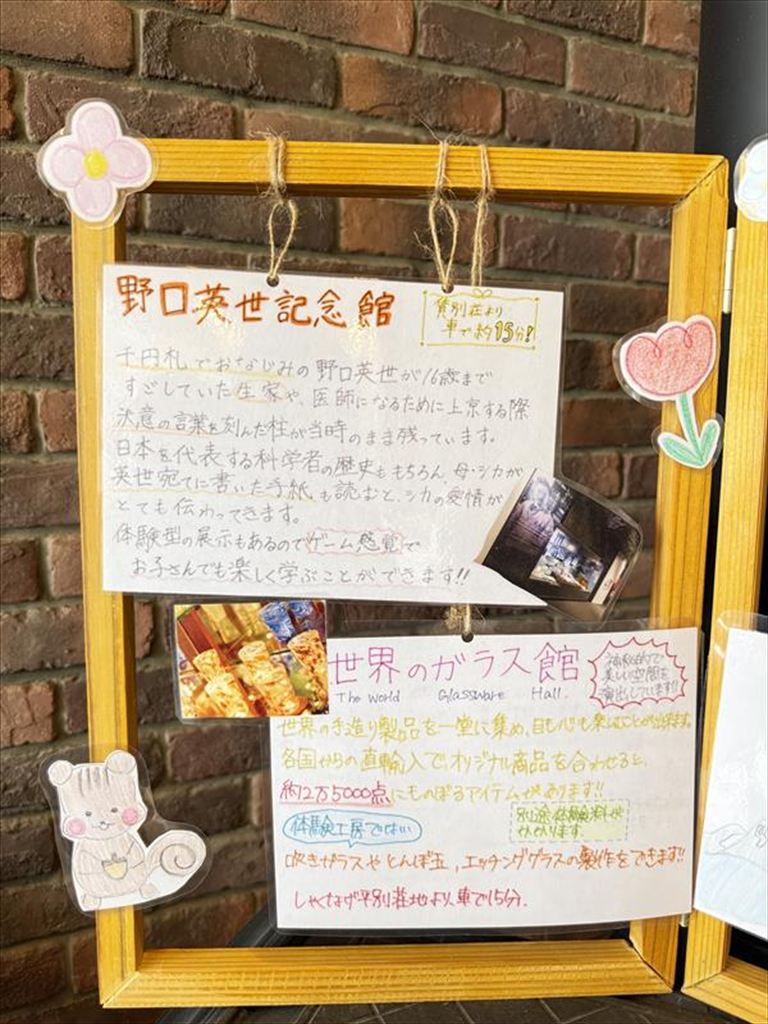 野口英世記念館
貸別荘より
車で約15分!
千円札でおなじみの野口英世が16歳まで
すごしていた生家や、医師になるために上京する際
決意の言葉を刻んだ柱が当時のまま残っています。
日本を代表する科学者の歴史ももちろん、母・シカが
英世宛てに書いた手紙も読むと、シカの愛情が
とても伝わってきます。
体験型の展示もあるのでゲーム感覚で
お子さんでも楽しく学ぶことができます!!
世界のガラス館
The World Glassware Hall.
神秘的で
美しい空間を
演出しています!!
世界の手造り製品を一堂に集め、目も心も楽しむことが出来ます。
各国からの直輸入でオリジナル商品を合わせると、
約2万5000点にものぼるアイテムがあります!!
体験工房では…
別途体験料が
かかります
吹きガラスやとんぼ玉、エッチンググラスの製作もできます!!
しゃくなげ平別荘地より、車で15分.